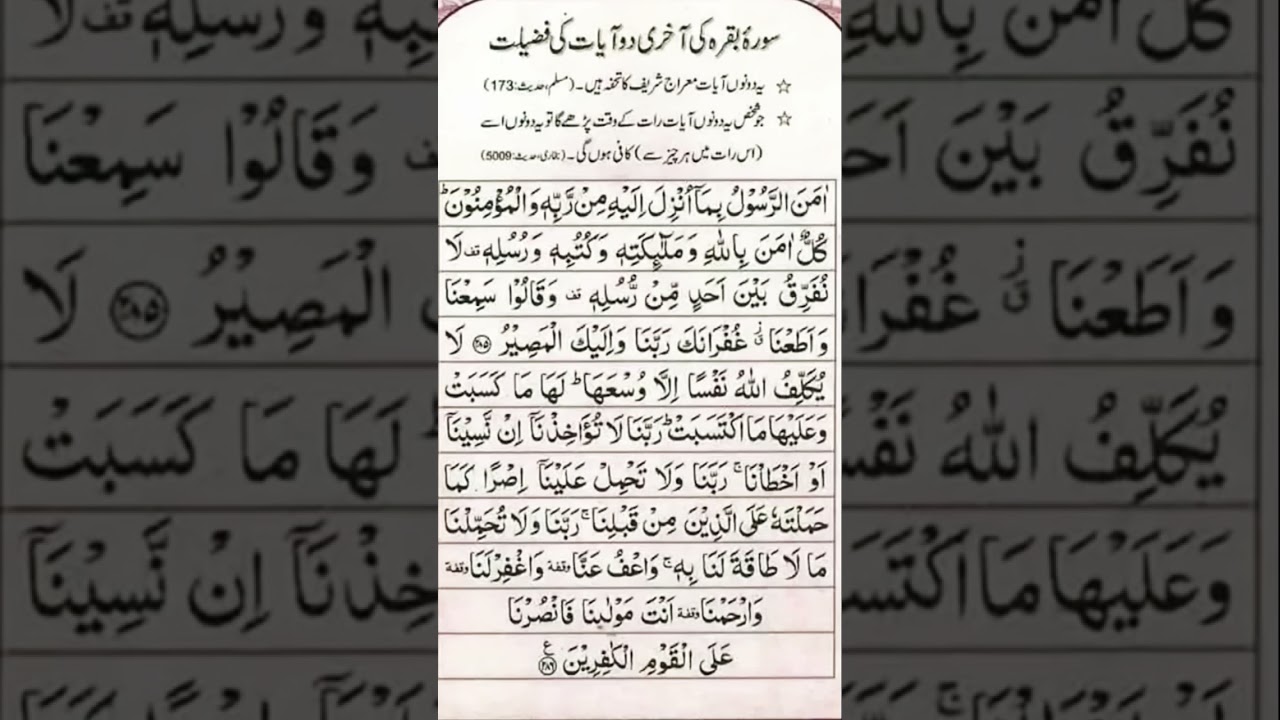 سورۂ بقرہ کی آخری دو آیات کی فضیلت
☆ یہ دونوں آیات معراج شریف کا تحفہ ہیں۔ (مسلم، حدیث: 173)
☆ جو شخص یہ دونوں آیات رات کے وقت پڑھے گا تو یہ دونوں اسے
(اس رات میں ہر چیز سے) کافی ہوں گی۔ (بخاری، حدیث: 5009)
اٰمَنَ الرَّسُوْلُ بِمَاۤ اُنْزِلَ اِلَیْهِ مِنْ رَّبِّهٖ وَ الْمُؤْمِنُوْنَ ؕ
كُلٌّ اٰمَنَ بِاللّٰهِ وَ مَلٰٓىِٕكَتِهٖ وَ كُتُبِهٖ وَ رُسُلِهٖ قف لَا
نُفَرِّقُ بَیْنَ اَحَدٍ مِّنْ رُّسُلِهٖ قف وَ قَالُوْا سَمِعْنَا
وَ اَطَعْنَا ق٘ز غُفْرَانَكَ رَبَّنَا وَ اِلَیْكَ الْمَصِیْرُ ﴿۲۸۵﴾ لَا
یُكَلِّفُ اللّٰهُ نَفْسًا اِلَّا وُسْعَهَا ؕ لَهَا مَا كَسَبَتْ
وَ عَلَیْهَا مَا اكْتَسَبَتْ ؕ رَبَّنَا لَا تُؤَاخِذْنَاۤ اِنْ نَّسِیْنَاۤ
اَوْ اَخْطَاْنَا ۚ رَبَّنَا وَ لَا تَحْمِلْ عَلَیْنَاۤ اِصْرًا كَمَا
حَمَلْتَهٗ عَلَى الَّذِیْنَ مِنْ قَبْلِنَا ۚ رَبَّنَا وَ لَا تُحَمِّلْنَا
مَا لَا طَاقَةَ لَنَا بِهٖ ۚ وَ اعْفُ عَنَّا وقفة وَ اغْفِرْ لَنَا وقفة
وَ ارْحَمْنَا وقفة اَنْتَ مَوْلٰىنَا فَانْصُرْنَا
عَلَى الْقَوْمِ الْكٰفِرِیْنَ ﴿۲۸۶﴾ ع